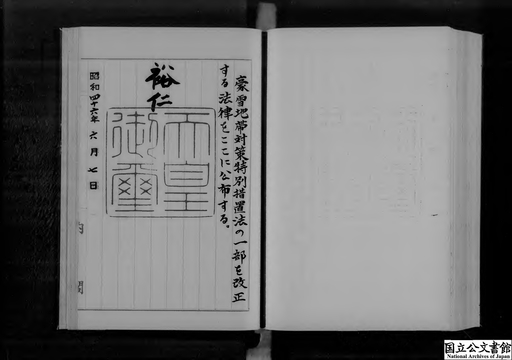 豪雪地帯対策特別措置法の一部を改正
する法律をここに公布する。
裕仁
天皇
御璽
昭和四十六年六月七日
内閣
国立公文書館
National Archives of Japan